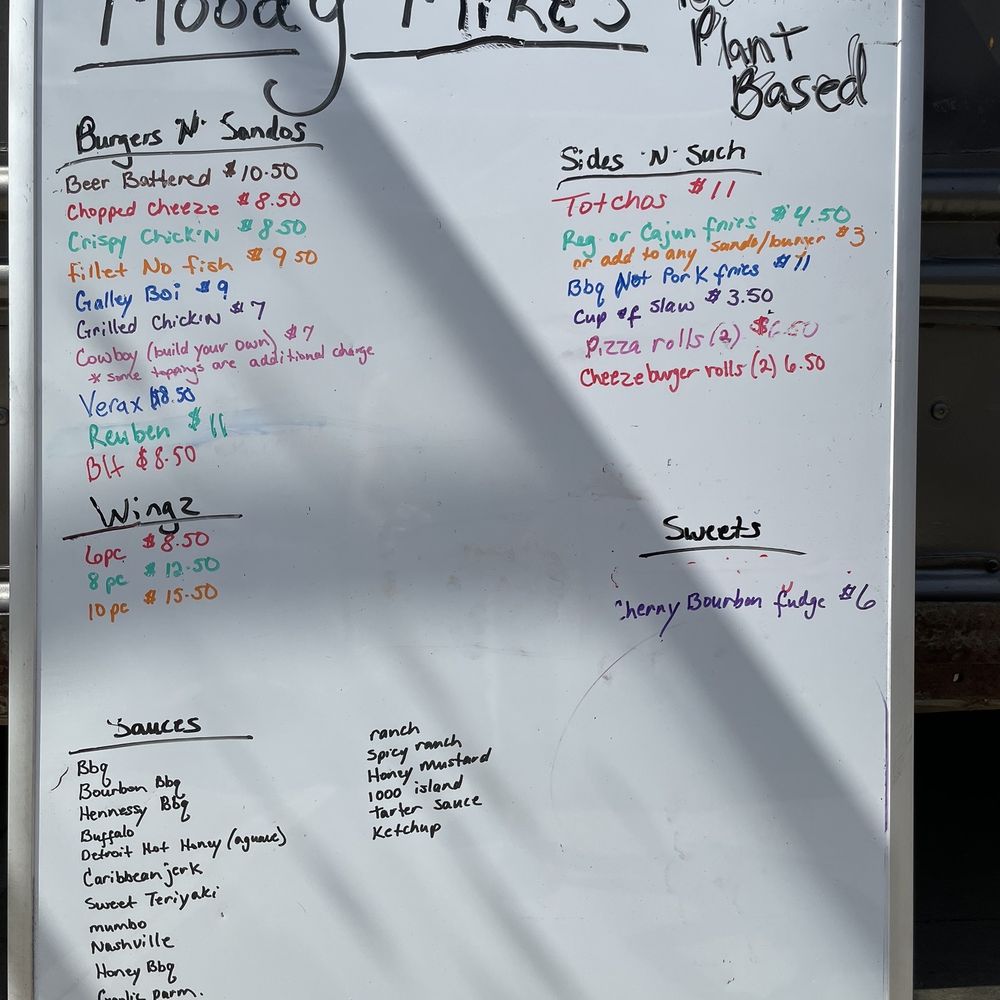 Moody Mike's
Plant
Based
Burgers 'N' Sandos
Beer Battered $10.50
Chopped Cheeze $8.50
Crispy Chick'N $8.50
Fillet No fish $9.50
Galley Boi $9
Grilled Chick'N $7
Cowboy (build your own) $7
* some toppings are additional charge
Verax $8.50
Reuben $11
Blt $8.50
Wingz
6pc $8.50
8pc $12.50
10pc $15.50
Sides 'N' Such
Totchos $11
Reg. or Cajun fries $4.50
or add to any sando/burger $3
Bbq Not Pork fries $11
Cup of slaw $3.50
Pizza rolls (2) $6.50
Cheezeburger rolls (2) 6.50
Sweets
Cherry Bourbon fudge $6
Sauces
Bbq
Bourbon Bbq
Hennessy Bbq
Buffalo
Detroit Hot Honey (aguave)
Caribbean jerk
Sweet Teriyaki
mumbo
Nashville
Honey Bbq
Garlic parm.
ranch
Spicy ranch
Honey mustard
1000 island
tarter sauce
Ketchup